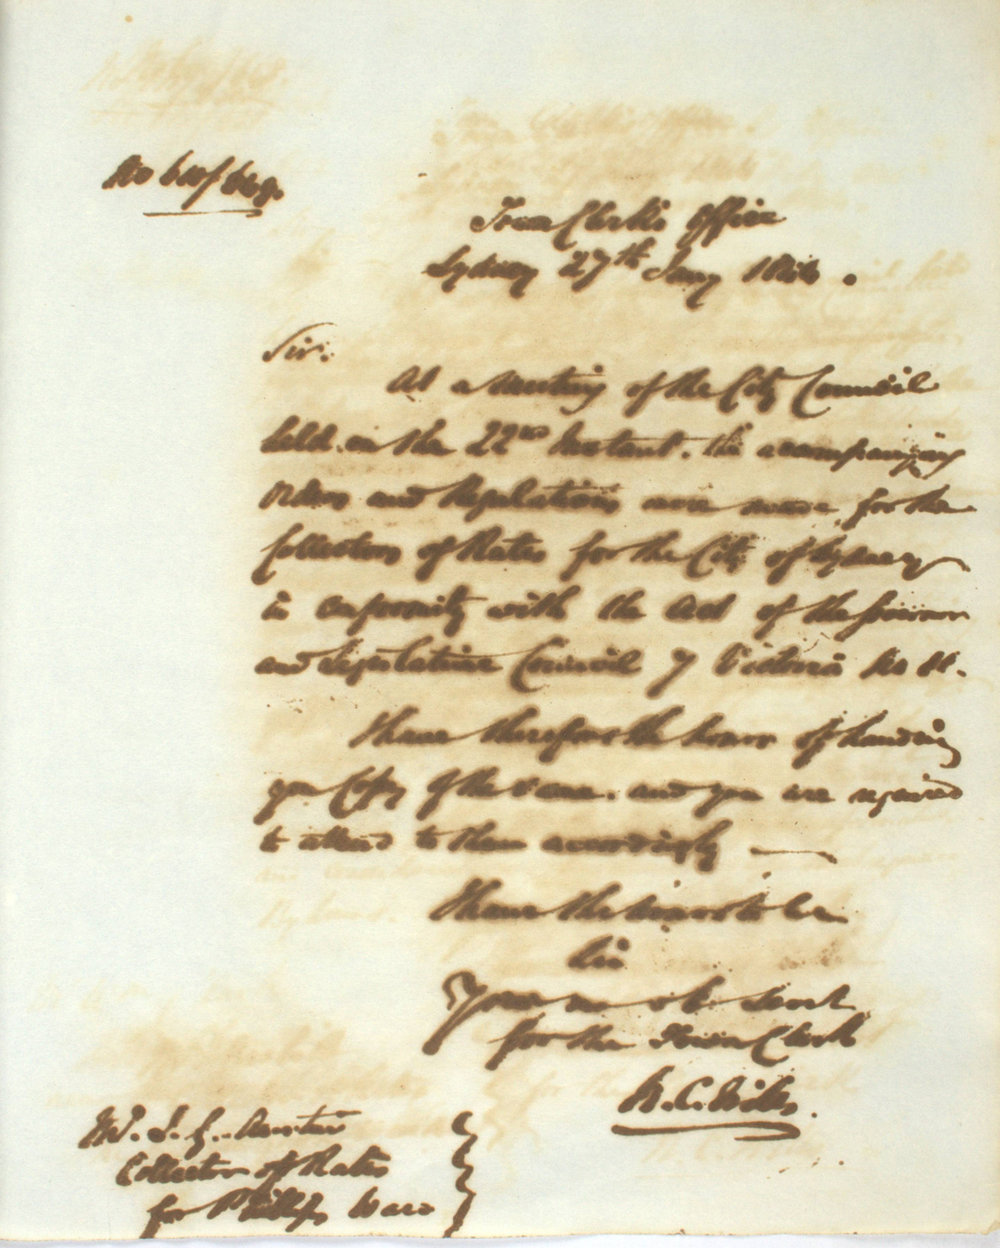 Town Clerk's Office
Sydney 27th Jany 1844.
Sir.
At a Meeting of the City Council
held on the 22nd Instant. the accompanying
Orders and Regulations were made for the
Collectors of Rates for the City of Sydney
in conformity with the Act of the Governor
and Legislative Council 7 Victoria No
I have therefore the honor of handing
you Copy of the same. and you are required
to attend to them accordingly
I have the honor to be
Sir
Your m ob Servt
for the Town Clerk
Mr. J. G.
Collector of Rates
for Phillip Ward